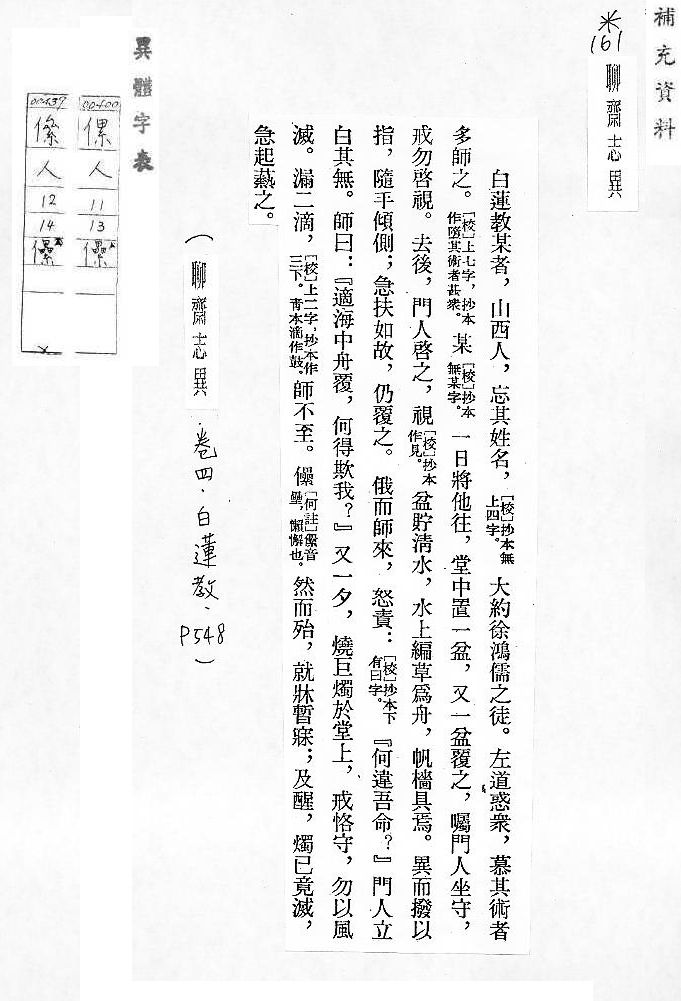 補充資料
※
161
聊齋志異
白蓮教某者，山西人，忘其姓名，[校]抄本無上四字。大約徐鴻儒之徒。左道惑衆，慕其術者
多師之。[校]上七字，抄本作墮其術者甚衆。某[校]抄本無某字。一日將他往，堂中置一盆，又一盆覆之，囑門人坐守，
戒勿啓視。去後，門人啓之，視[校]抄本作見。盆貯清水，水上編草爲舟，帆檣具焉。異而撥以
指，隨手傾側；急扶如故，仍覆之。俄而師來，怒責：[校]抄本下有曰字。『何違吾命？』門人立
白其無。師曰：『適海中舟覆，何得欺我？』又一夕，燒巨燭於堂上，戒恪守，勿以風
滅。漏二滴，[校]上二字，抄本作三下。青本滴作鼓。師不至。儽[何註]儽音壘，懶懈也。然而殆，就牀暫寐；及醒，燭已竟滅，
急起爇之。
（聊齋志異．卷四．白蓮教．P548）
異體字表
00400
人
11
13
00439
人
12
14